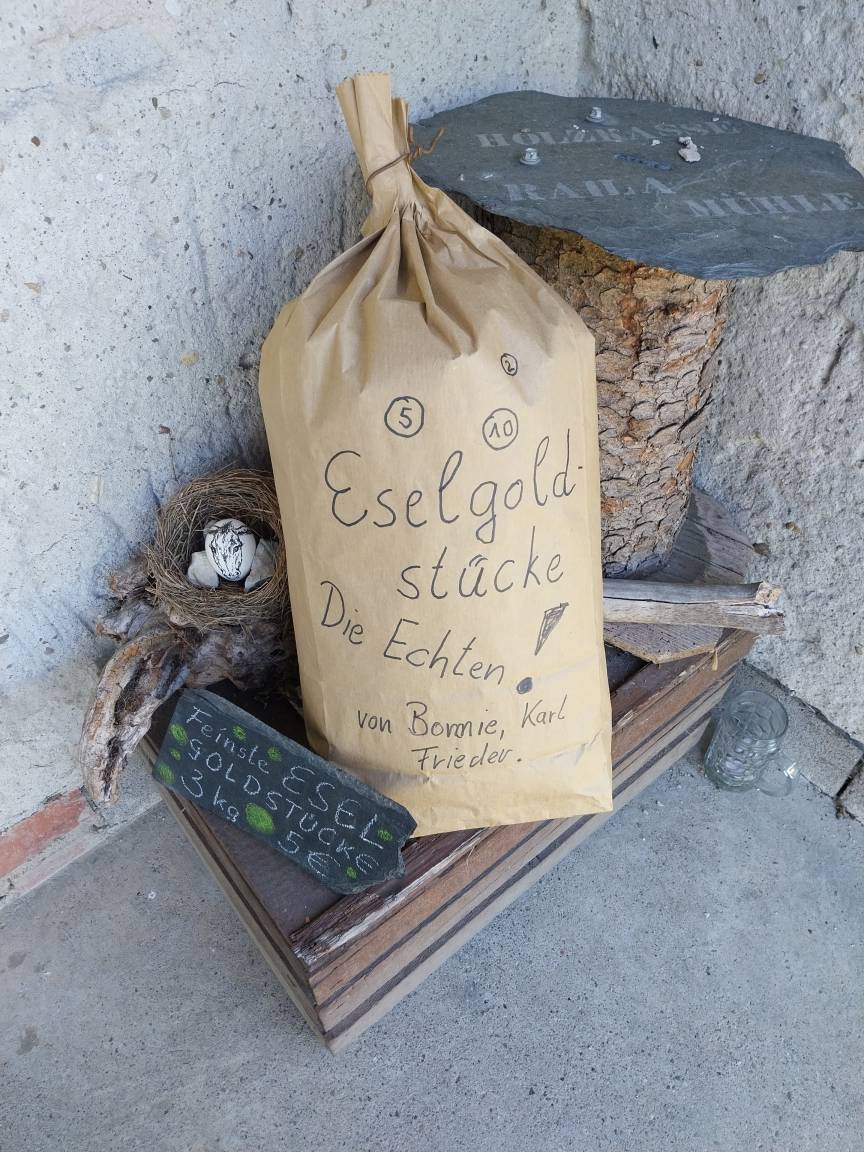 HOLZKASSE
RAILA MÜHLE
2
5
10
Eselgold-
stücke
Die Echten!
von Bonnie, Karl
Frieder.
Feinste ESEL
GOLDSTÜCKE
3 kg 5€